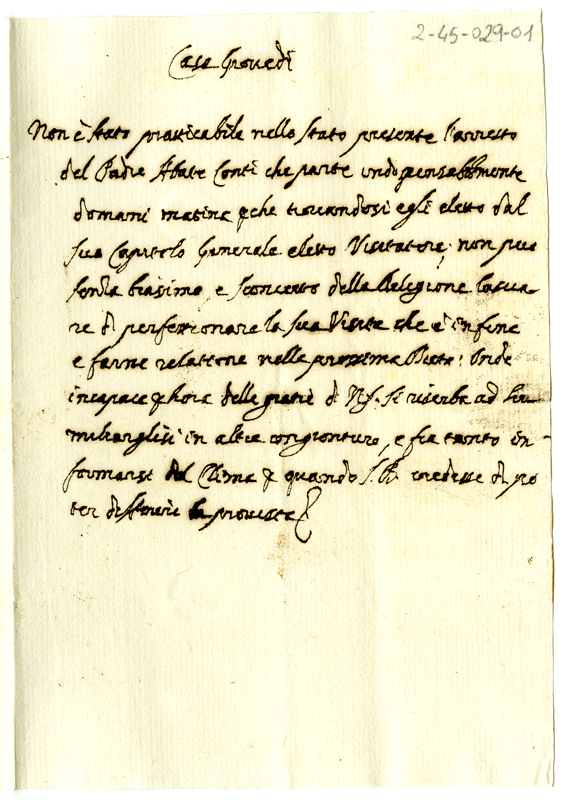 2-45-029-01
Casa Giovedi
Non è stato pratticabile nello stato presente l'arresto
del Padre Abate Conti che parte indispensabilmente
domani matina e che trovandosi egli eletto dal
suo Capitolo Generale eletto Visitatore, non può
senza biasimo, e sconcerto della Relegione lascia
re di perfettionare la sua Visita che è in fine
e farne relatione nella prossima Dieta: Onde
incapace hora delle gratie di si riserba ad hu
miliarglisi in altra congiontura, e fra tanto in-
formarsi del Clima quando S. credesse di po
ter differire la provista